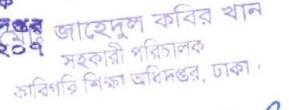 জাহেদুল কবির খান
২০৭
সহকারী পরিচালক
কারিগরি শিক্ষা অধিদপ্তর, ঢাকা।